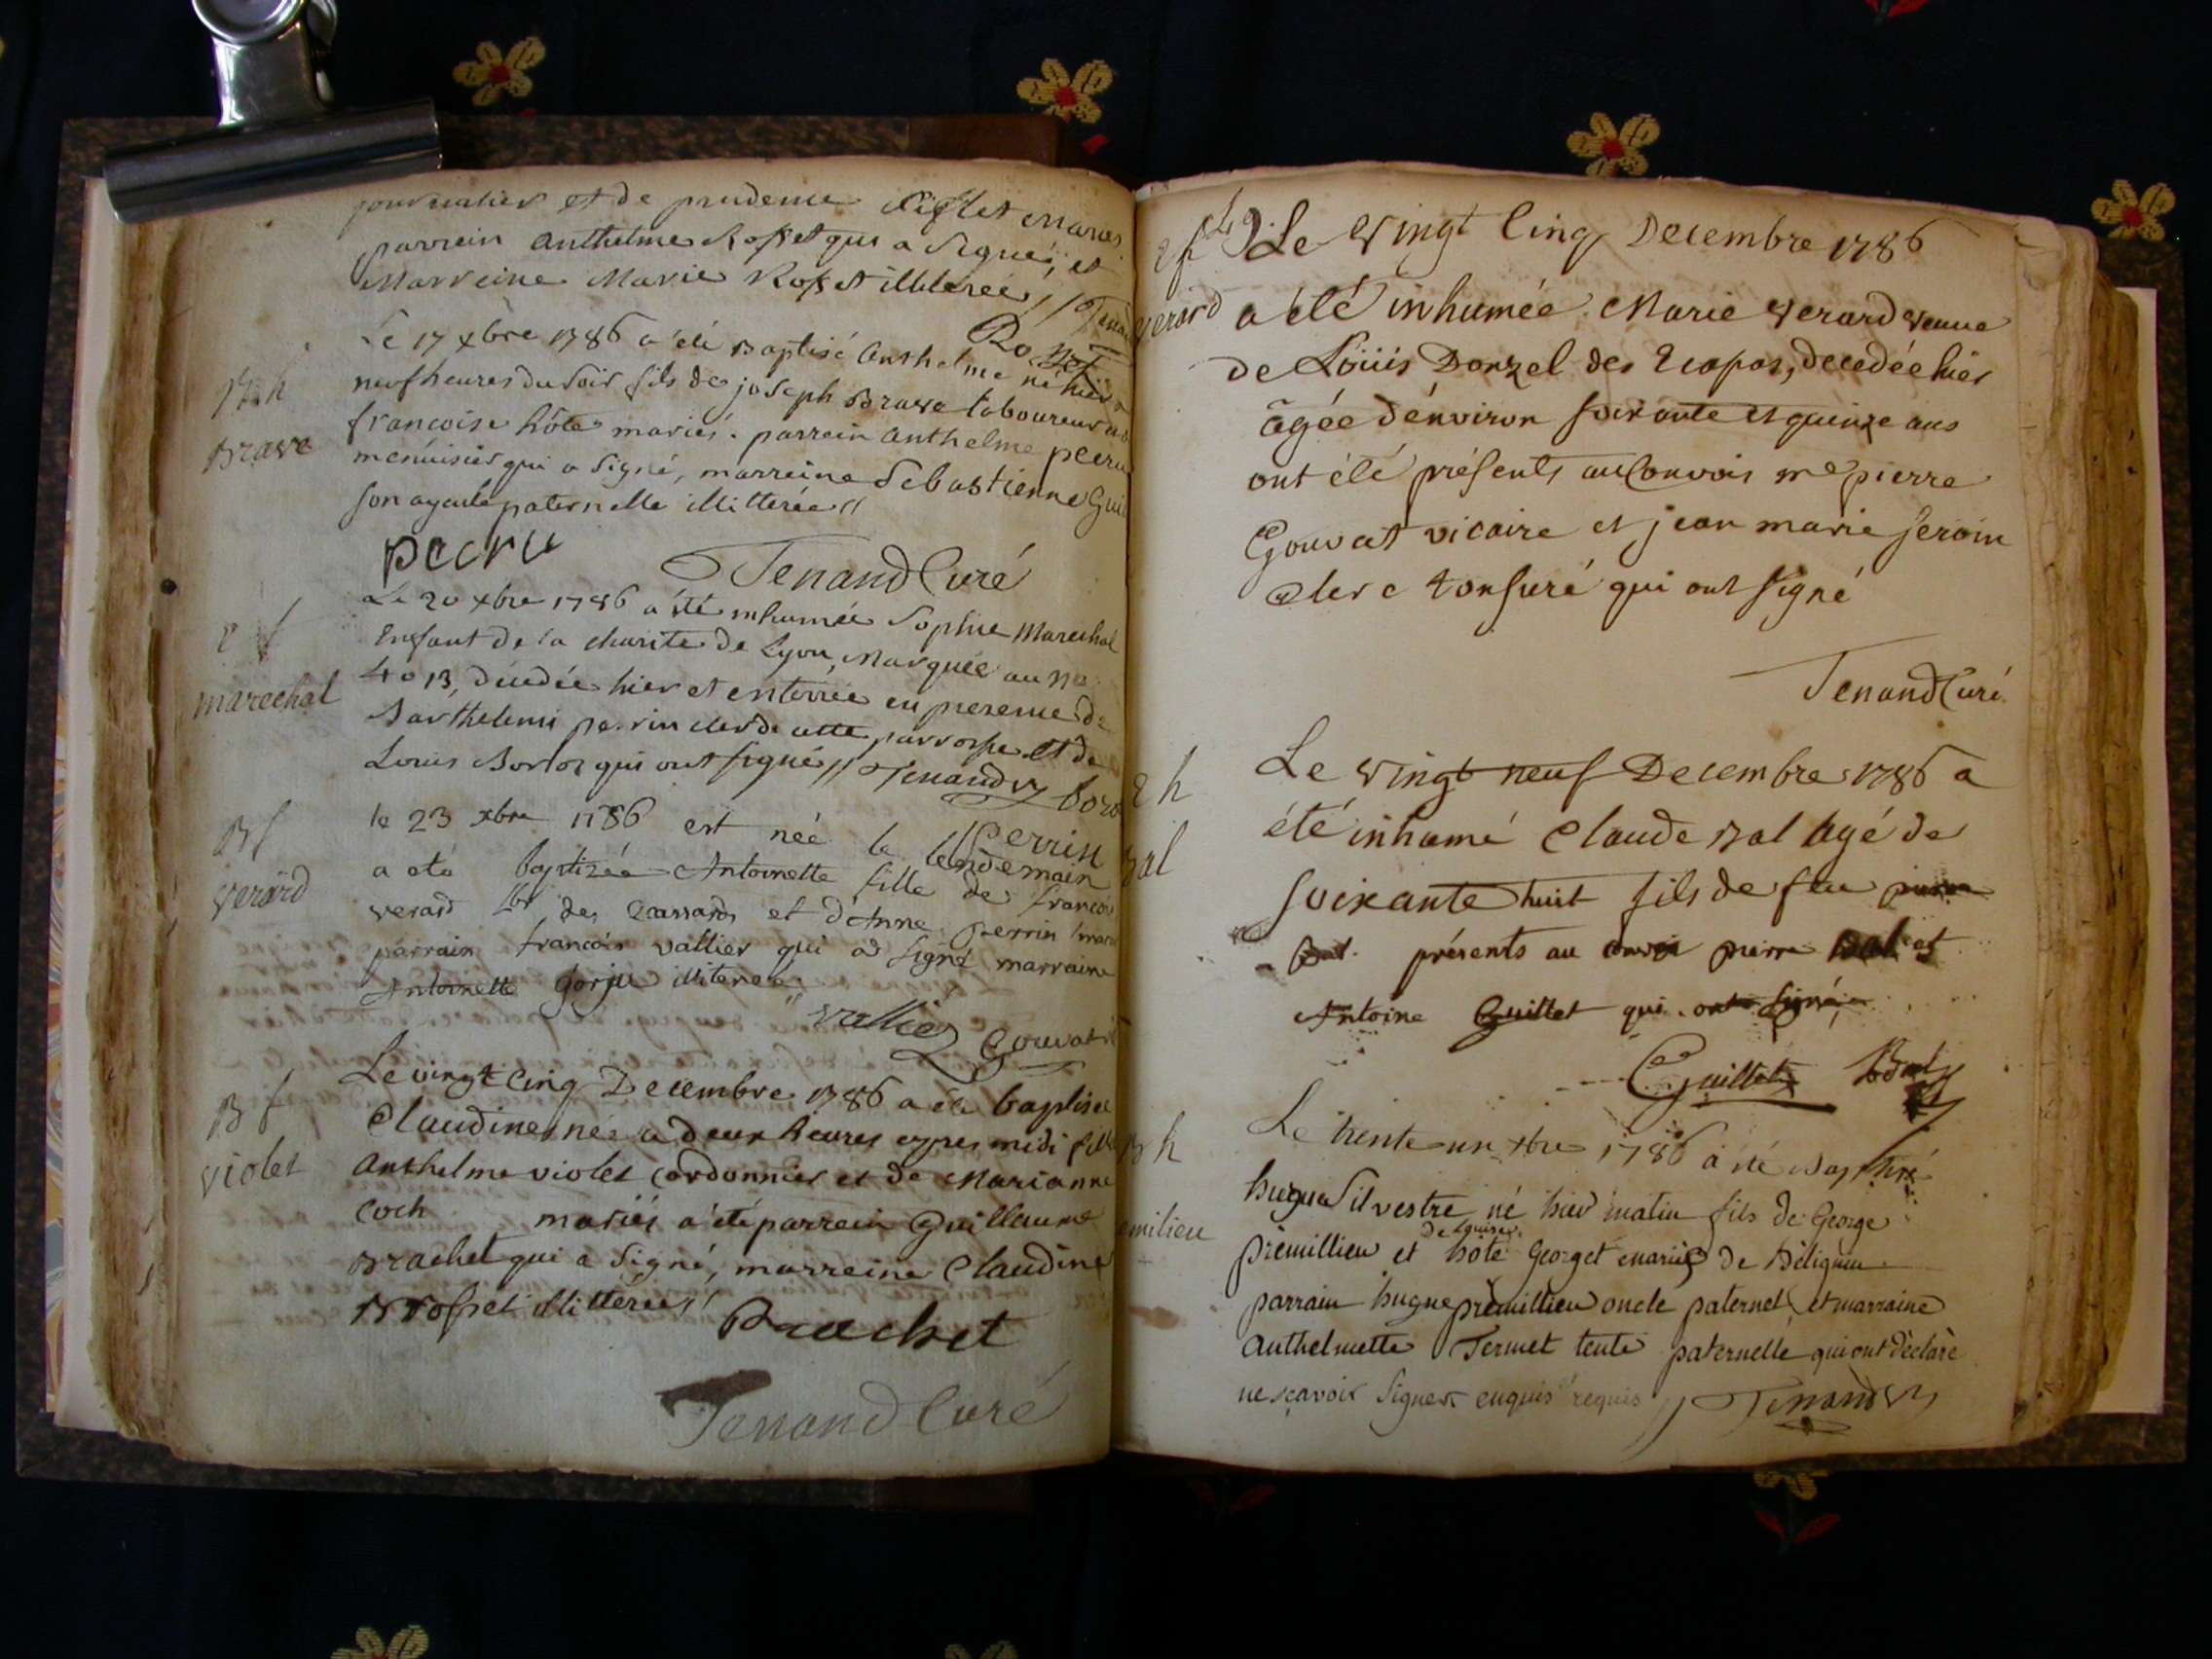 journalier et de prudence mariés
parrein Anthelme Rosset qui a signé, et
Marreine Marie Rosset illiterée //
Rosset
B h
Brave
Le 17 xbre 1786 a été Baptisé Anthelme né hier a
neuf heures du soir fils de joseph Brave laboureur
francoise hôte mariés. parrein Anthelme peeru
menüisier qui a signé, marreine Sebastienne
son ayeule paternelle illitterée //
peeru
Tenand Curé
marechal
Le 20 xbre 1786 a été inhumée Sophie Marechal
Enfant de la charité de Lyon, Marquée au No
4013, décédée hier et enterrée en presence de
Barthelemi perrin clerc de cette parroisse et de
Louis Borloz qui ont signé // Tenand
Perrin
B f
verard
le 23 xbre 1786 est née le lendemain
a eté baptizée Antoinette fille de francois
verard des et d'Anne perrin
parrain francois vallier qui a signé marraine
Antoinette Gorju illiterée
vallier Gouvat
B f
violet
Le vingt cinq Decembre 1786 a été baptisée
Claudine née a deux heures apres midi fille
Anthelme violet Cordonnier et de Marianne
Coch mariés a été parrein Guillaume
Brachet qui a signé, marreine Claudine
Brosset illitterée
Brachet
Tenand Curé
verard
Le Vingt Cinq Decembre 1786
a été inhumée Marie Verard veuve
de Loüis Donzel des Ecopas, decedée hier
âgée d'environ soixante et quinze ans
ont été présents au Convois me pierre
Gouvat vicaire et jean marie seroin
clerc tonsuré qui ont signé
Tenand Curé
Bal
Le Vingt neuf Decembre 1786 a
été inhumé Claude Bal âgé de
soixante huit fils de feu
Bal. présents au convoi pierre Bal et
Antoine Guillet qui ont signé
Guillet Bal
B h
emilieu
Le trente un xbre 1786 a été Baptisé
hugue Silvestre né hier matin fils de George
de Louise
premillieu et hote Georget mariés de Béligneu
parrain hugue premillieu oncle paternel et marraine
Anthelmette Termet tente paternelle qui ont déclaré
ne sçavoir signer enquis requis // Tenand